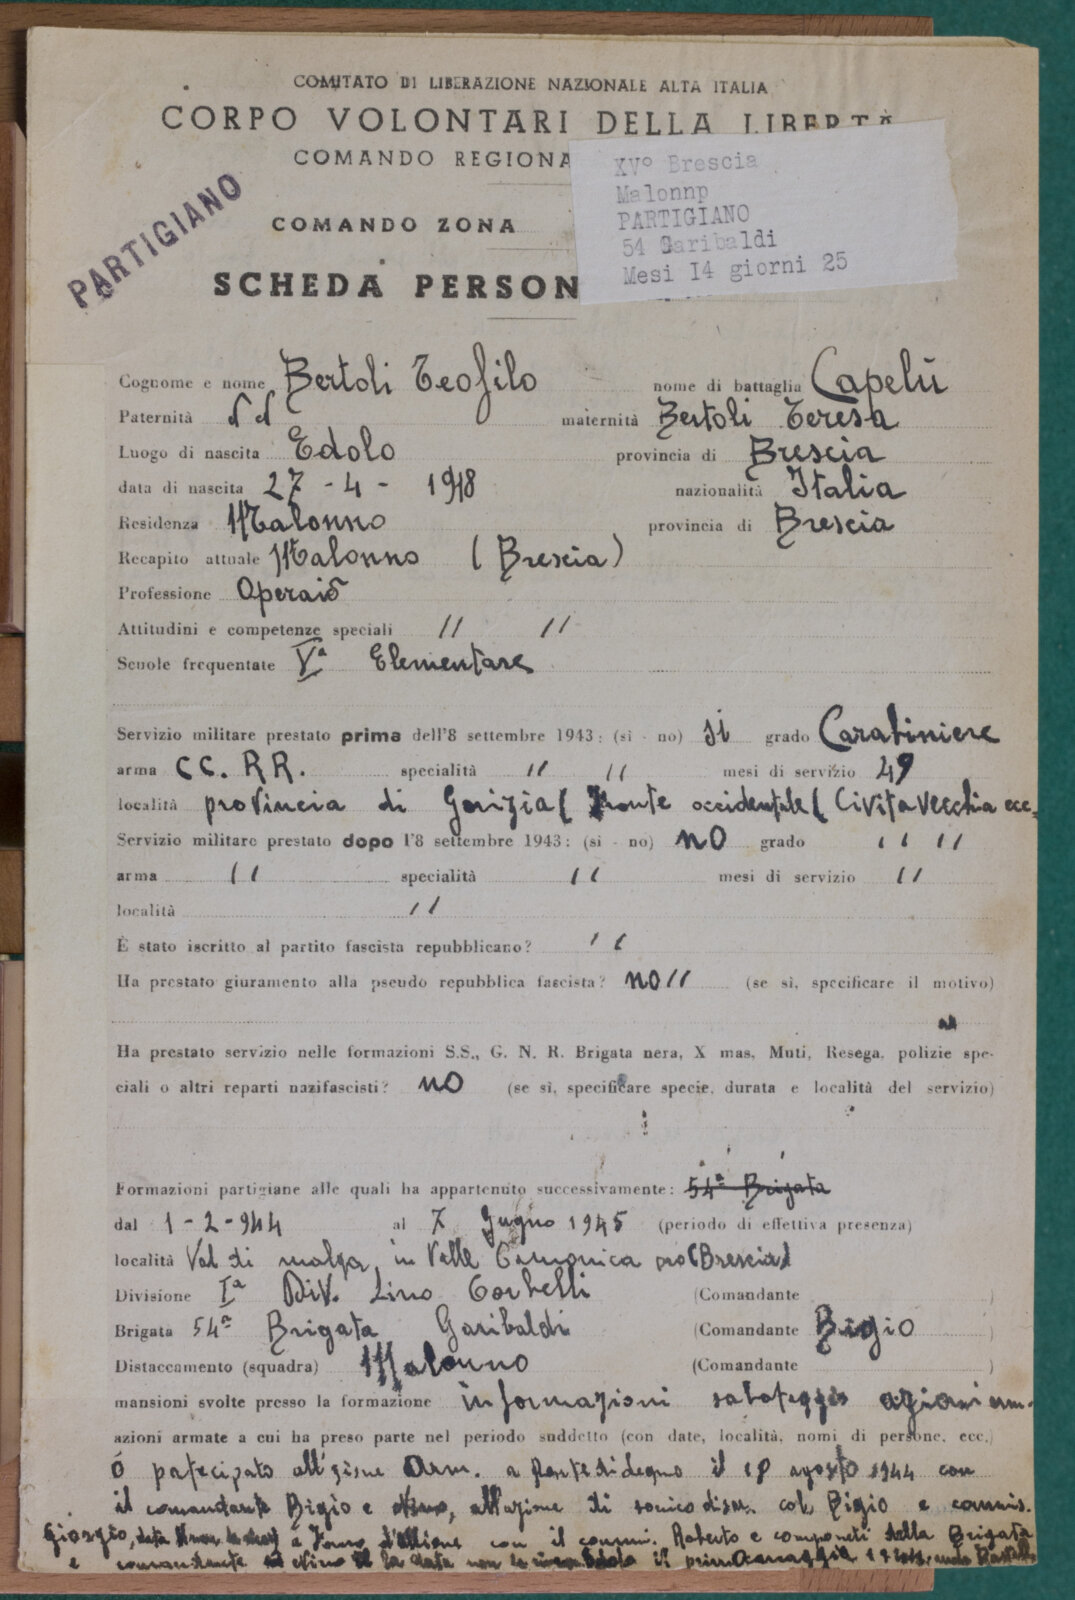 COMITATO DI LIBERAZIONE NAZIONALE ALTA ITALIA
CORPO VOLONTARI DELLA LIBERTÀ
COMANDO REGIONA
XVº Brescia
Malonnp
PARTIGIANO
54 Garibaldi
Mesi I4 giorni 25
PARTIGIANO
COMANDO ZONA
SCHEDA PERSON
Cognome e nome Bertoli Teofilo nome di battaglia Capelù
Paternità N N maternità Bertoli Teresa
Luogo di nascita Edolo provincia di Brescia
data di nascita 27 - 4 - 1918 nazionalità Italia
Residenza Malonno provincia di Brescia
Recapito attuale Malonno (Brescia)
Professione Operaio
Attitudini e competenze speciali // //
Scuole frequentate Vª Elementare
Servizio militare prestato prima dell'8 settembre 1943: (si - no) si grado Carabiniere
arma CC. RR. specialità // // mesi di servizio 49
località provincia di Gorizia ( Fronte occidentale ( Civitavecchia ecc.
Servizio militare prestato dopo l'8 settembre 1943: (si - no) no grado // //
arma // specialità // mesi di servizio //
località //
È stato iscritto al partito fascista repubblicano? //
Ha prestato giuramento alla pseudo repubblica fascista? no // (se sì, specificare il motivo)
Ha prestato servizio nelle formazioni S.S., G. N. R. Brigata nera, X mas, Muti, Resega, polizie spe-
ciali o altri reparti nazifascisti? no (se sì, specificare specie, durata e località del servizio)
Formazioni partigiane alle quali ha appartenuto successivamente: 54ª Brigata
dal 1-2-944 al 7 Giugno 1945 (periodo di effettiva presenza)
località Val di malga in Valle Camonica pro (Brescia)
Divisione Iª Div. Lino Corbelli (Comandante )
Brigata 54ª Brigata Garibaldi (Comandante Bigio )
Distaccamento (squadra) Malonno (Comandante )
mansioni svolte presso la formazione informazioni sabotaggio azioni arm.
azioni armate a cui ha preso parte nel periodo suddetto (con date, località, nomi di persone, ecc.)
Ó partecipato all'azione Arm. a Ponte di legno il 18 agosto 1944 con
il comandante Bigio e Nino, all'azione di sonico disar. col Bigio e commis.
Giorgio, data a Forno d'allione con il commi. Roberto e componeti della Brigata
e comandante Nino la data non la il primo